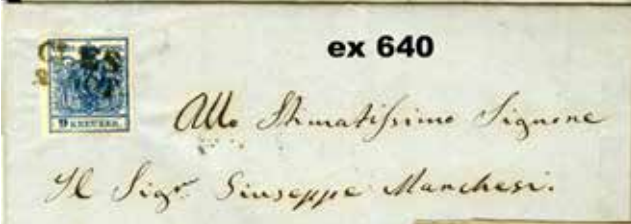 ex 640
9 KREUZER
Allo Stimatissimo Signore
Il Sigr. Giuseppe Marchesi.